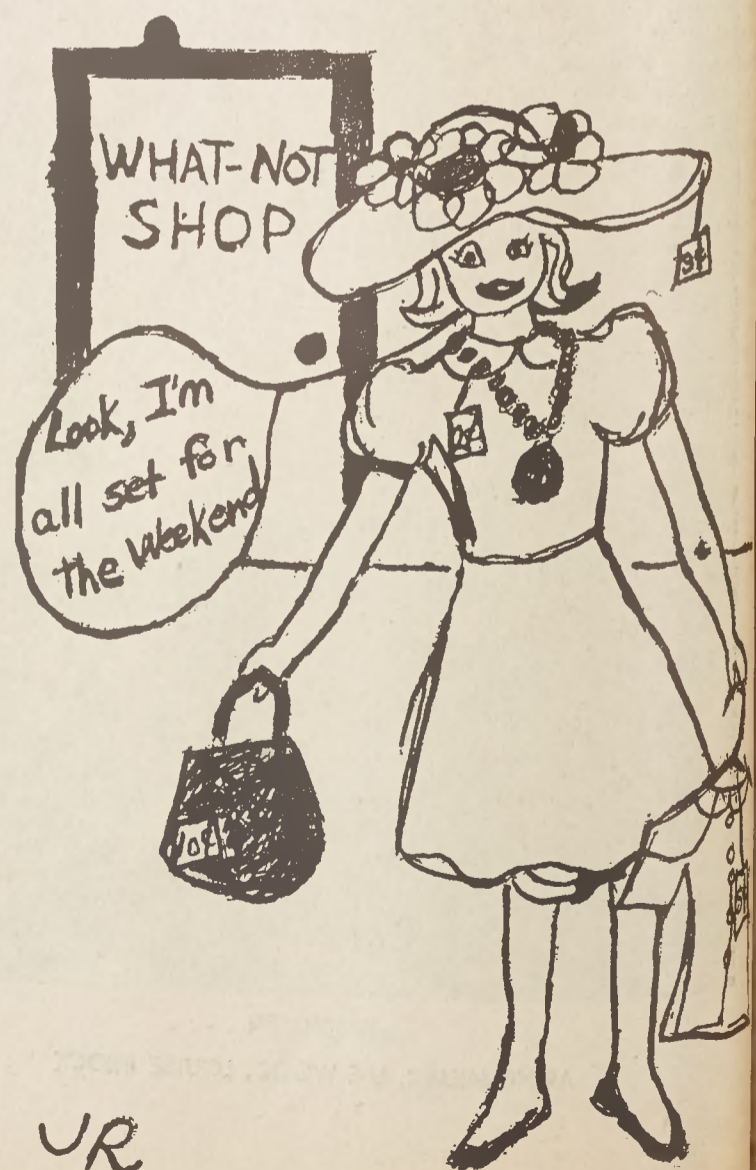 WHAT-NOT
SHOP
Look, I'm
all set for
the Weekend
10¢
JR